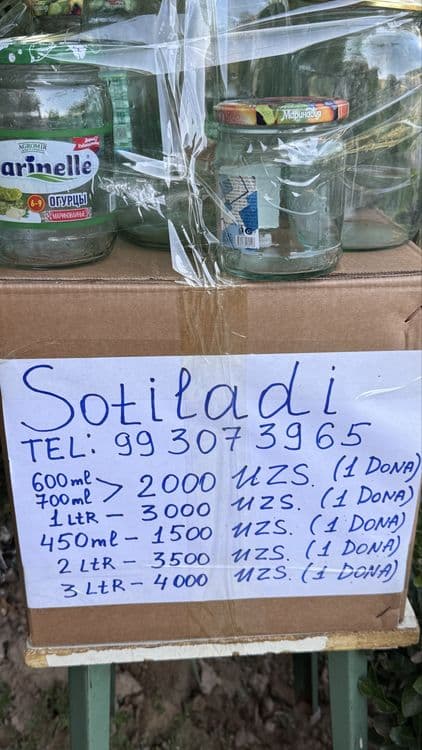 Маринадия
AGROMIR
arinellé
6-9
ОГУРЦЫ
МАРИНОВАННЫЕ
Sotiladi
TEL: 99 307 39 65
600ml
700ml > 2000 UZS. (1 DONA)
1 LtR – 3000 UZS. (1 DONA)
450ml – 1500 UZS. (1 DONA)
2 LtR – 3500 UZS. (1 DONA)
3 LtR – 4000 UZS. (1 DONA)